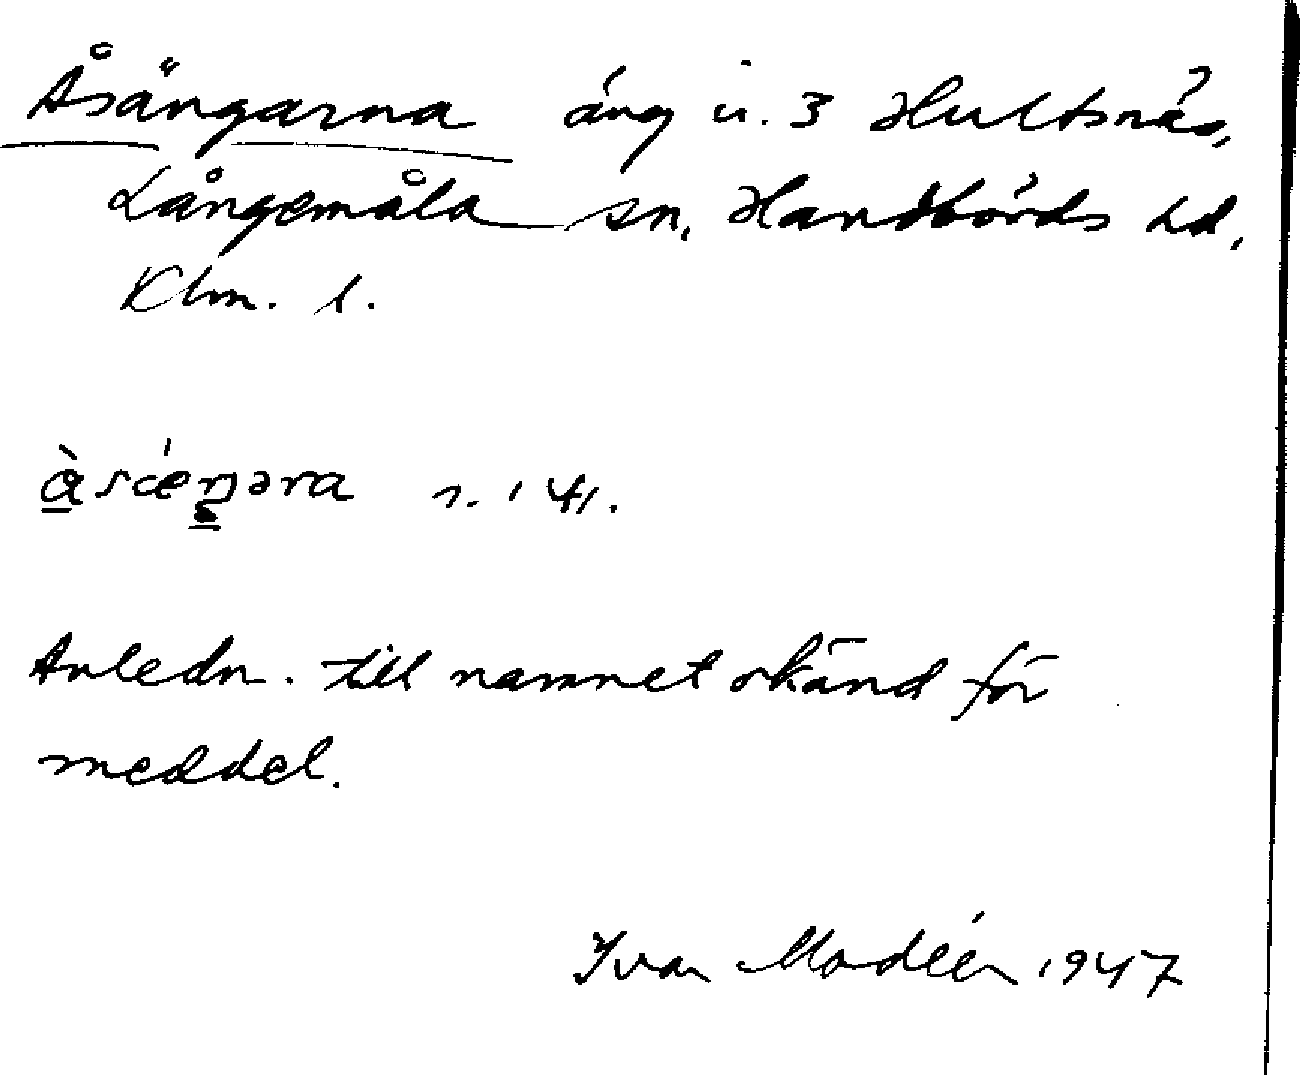 Åsängarna äng u. 3 Hultsnäs,
Långemåla sn, Handbörds hd,
Klm. l.
Anledn. till namnet okänd för
meddel.
Ivar Modéer 1947